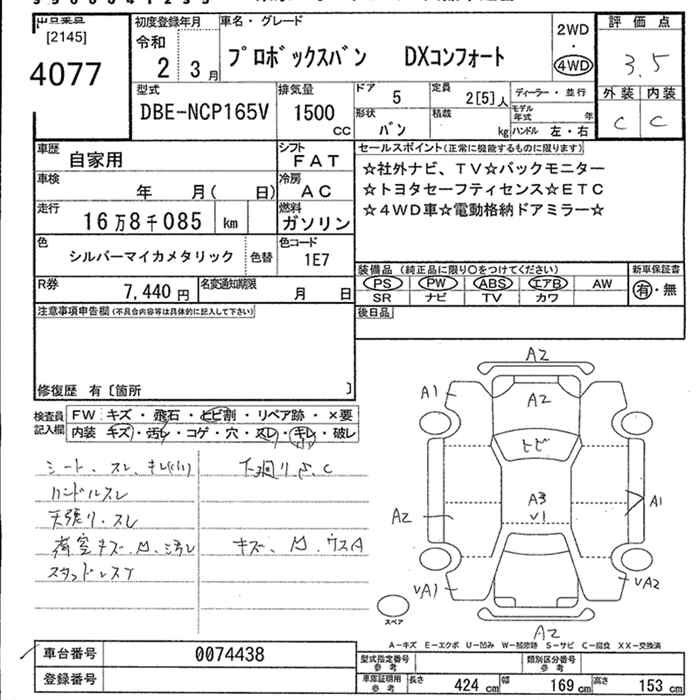 [2145]
4077
初度登録年月
令和
2 3月
車名・グレード
プロボックスバン DXコンフォート
2WD
・
4WD
評価点
3.5
外装 内装
C C
型式
DBE-NCP165V
排気量
1500
CC
ドア
5
定員
2[5]人
ディーラー・並行
形状
バン
積載
kg
モデル年式 年
ハンドル 左・右
車歴
自家用
シフト
FAT
車検
年 月( 日)
冷房
AC
走行
16万8千085 km
燃料
ガソリン
色
シルバーマイカメタリック
色替
色コード
1E7
R券
7,440円
名変通知期限
月 日
セールスポイント(正常に機能するものに限ります)
☆社外ナビ、TV☆バックモニター
☆トヨタセーフティセンス☆ETC
☆4WD車☆電動格納ドアミラー☆
装備品(純正品に限り○をつけてください)
PS PW ABS エアB AW
SR ナビ TV カワ
新車保証書
有・無
後日品
注意事項申告欄(不具合内容等は具体的に記入して下さい)
修復歴 有〔箇所 〕
検査員
記入欄
FW キズ・飛石・ヒビ割・リペア跡・×要
内装 キズ・汚レ・コゲ・穴・スレ・キレ・破レ
シート、スレ、キレ(小)
下廻りS、C
ハンドルスレ
天張り・スレ
荷室キズ、凹、汚レ
キズ、凹、ウスA
A2
A1
A2
ヒビ
A3
V1
A1
A2
VA1
VA2
A2
スペア
A−キズ E−エクボ U−凹み W−補修跡 S−サビ C−腐食 XX−交換済
車台番号
0074438
登録番号
型式指定番号
参考
類別区分番号
参考
車庫証明用
参考
長さ 424 cm 幅 169 cm 高さ 153 cm